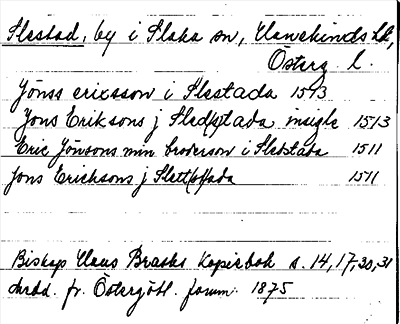 Slestad, by i Slaka sn, Hanekinds hd,
Österg l.
Jönss ericsson i Slestada 1513
Jöns Eriksons j Sled(s)tada insigle 1513
Eric Jönsons min broderson i Sletstada 1511
Jöns Ericksons j Slett(s)tada 1511
Biskop Hans Brasks Kopiebok s. 14, 17, 30, 31
chrbd. fr. Östergötl. fornm. 1875